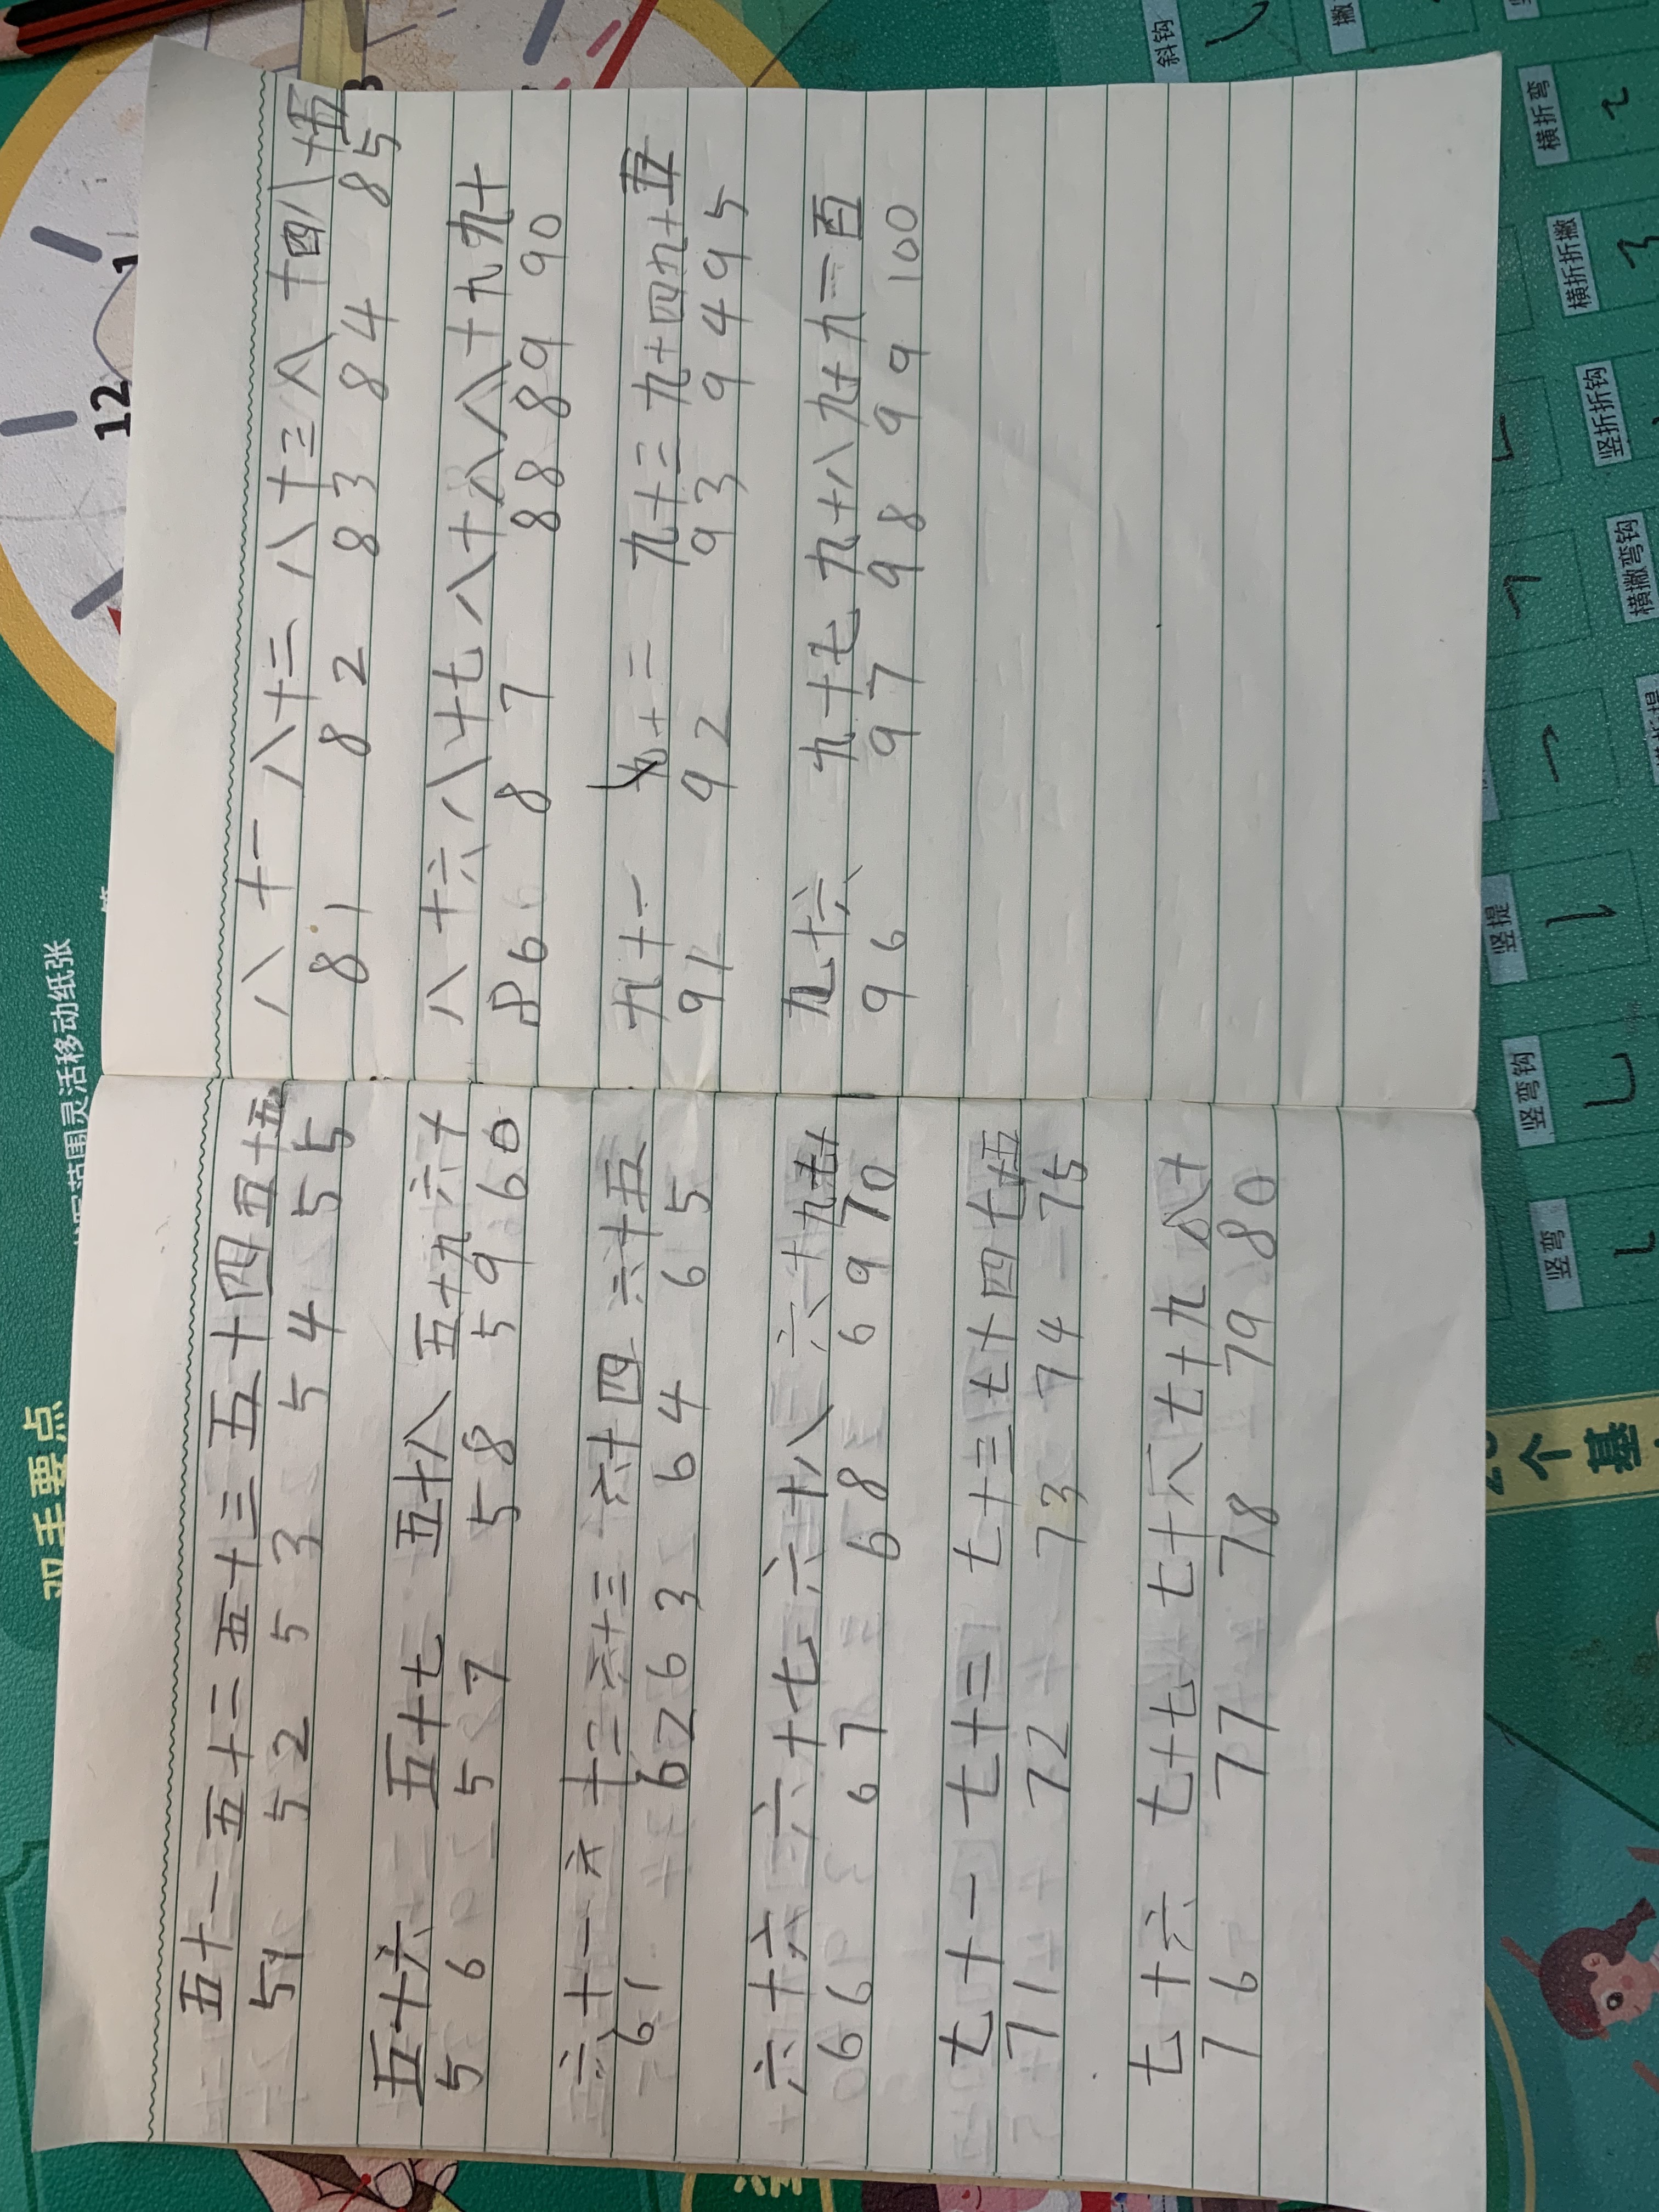 五十一 五十二 五十三 五十四 五十五
51 52 53 54 55
五十六 五十七 五十八 五十九 六十
56 57 58 59 60
六十一 六十二 六十三 六十四 六十五
61 62 63 64 65
六十六 六十七 六十八 六十九 七十
66 67 68 69 70
七十一 七十二 七十三 七十四 七十五
71 72 73 74 75
七十六 七十七 七十八 七十九 八十
76 77 78 79 80
八十一 八十二 八十三 八十四 八十五
81 82 83 84 85
八十六 八十七 八十八 八十九 九十
86 87 88 89 90
九十一 九十二 九十三 九十四 九十五
91 92 93 94 95
九十六 九十七 九十八 九十九 一百
96 97 98 99 100
双手要点
范围灵活移动纸张
12
1
斜钩
横折弯
横折折撇
竖折折钩
横撇弯钩
竖提
竖弯钩
竖弯
个基